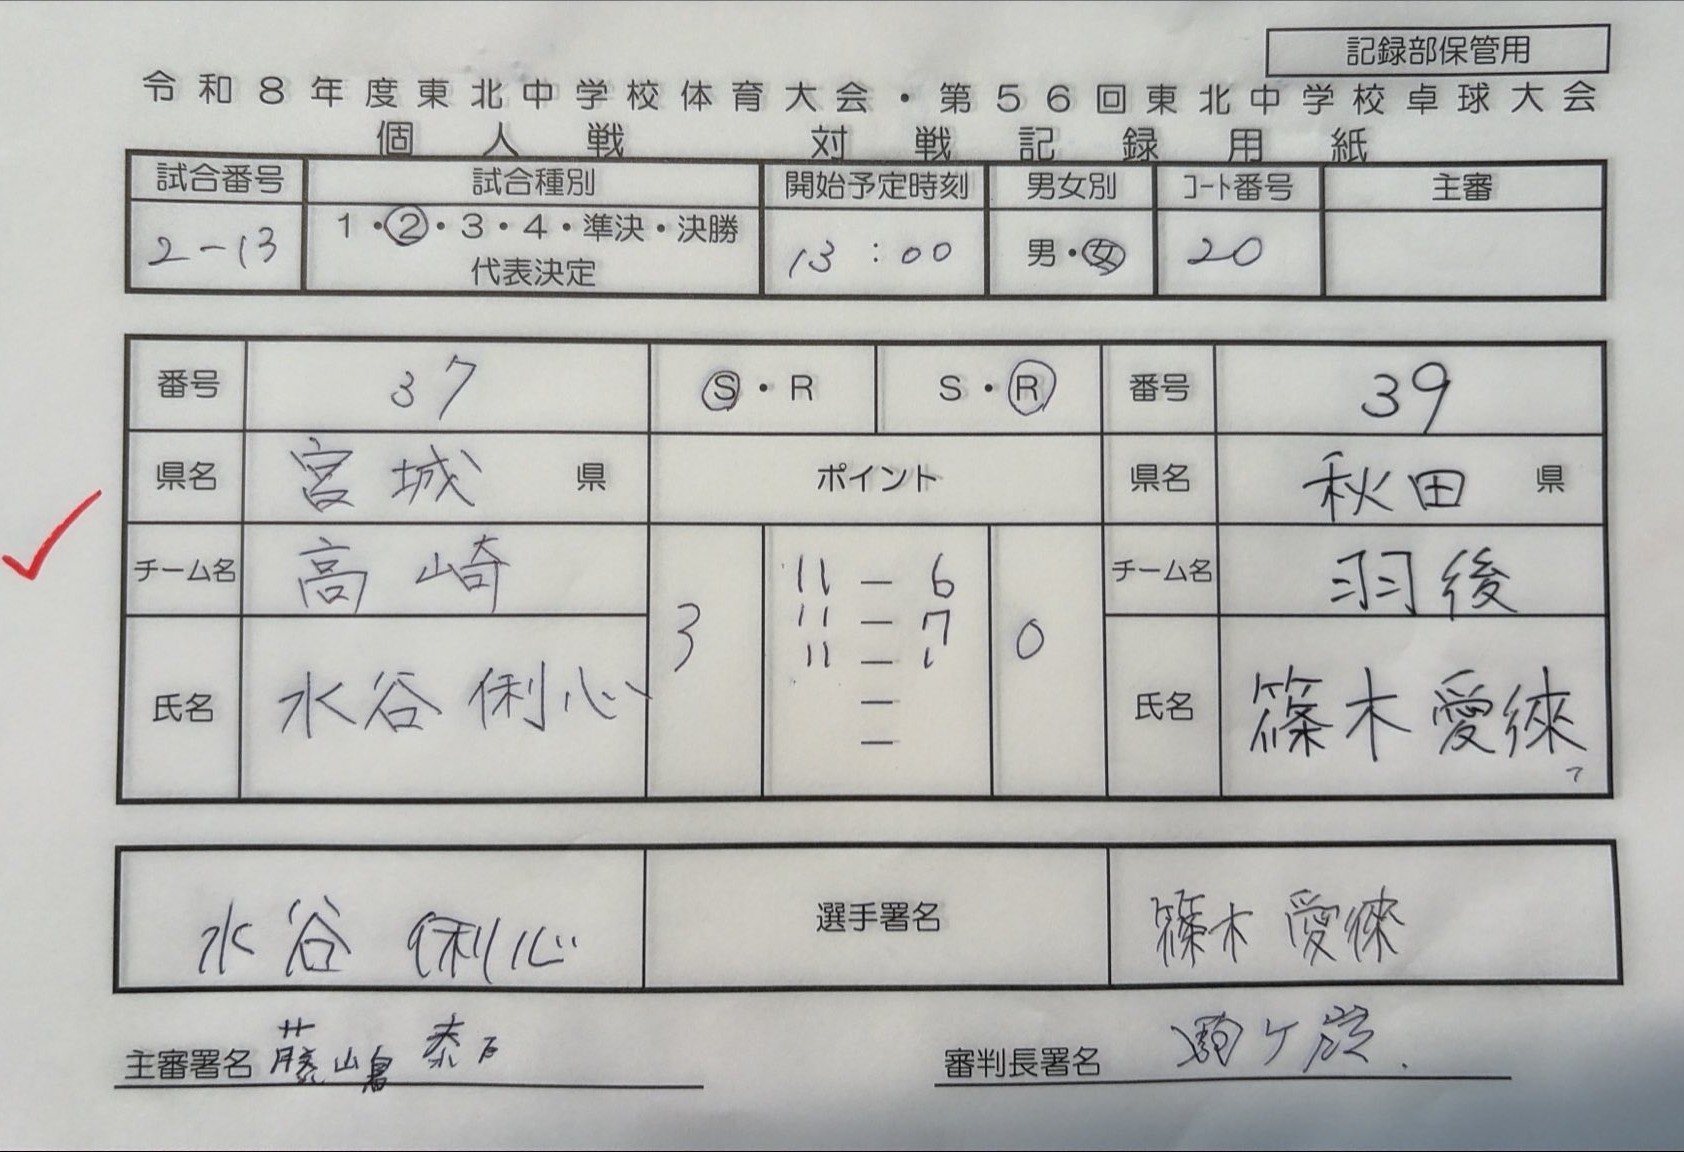 記録部保管用
令和8年度東北中学校体育大会・第56回東北中学校卓球大会
個人戦 対戦記録用紙
試合番号 試合種別 開始予定時刻 男女別 コート番号 主審
2-13 1・②・3・4・準決・決勝 13:00 男・女 20
代表決定
番号 37 S・R S・R 番号 39
県名 宮城 県 ポイント 県名 秋田 県
チーム名 高崎 チーム名 羽後
11 - 6
11 - 7
11 - 1
-
-
3 0
氏名 水谷 俐心 氏名 篠木 愛徠
水谷 俐心 選手署名 篠木 愛徠
主審署名 審判長署名 駒ケ嶺